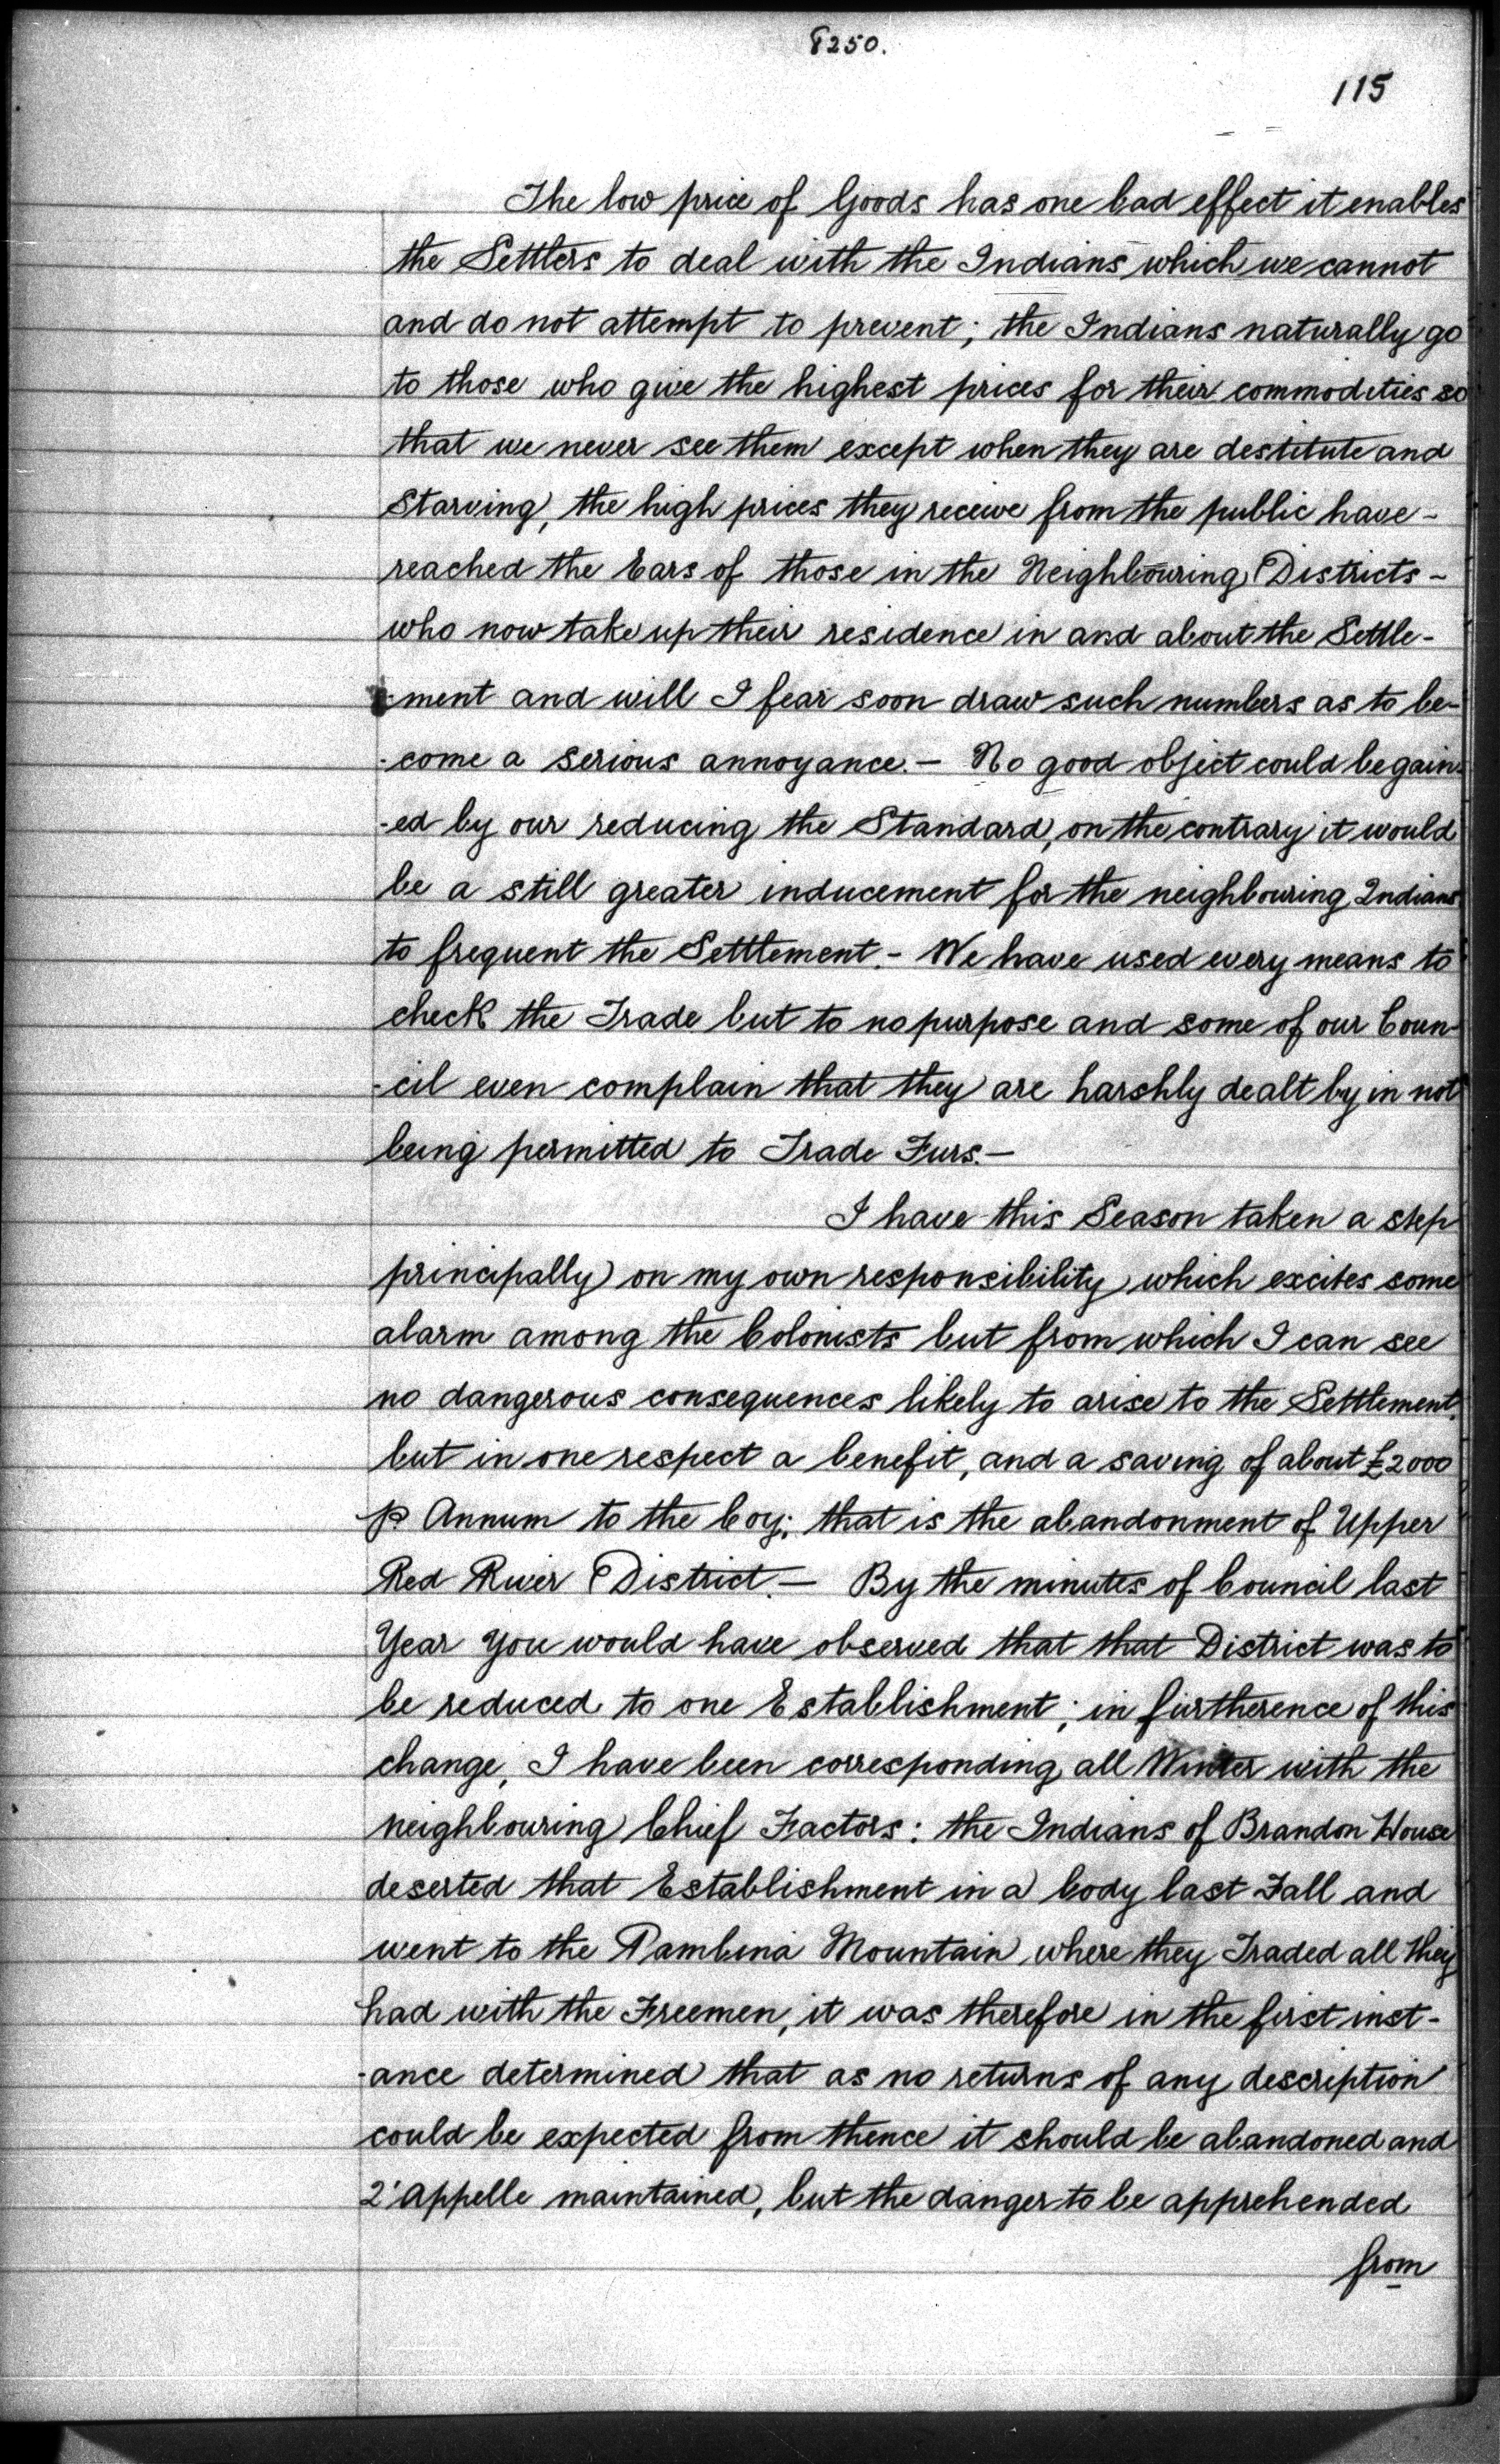 8250.
115
The low price of Goods has one bad effect it enables
the Settlers to deal with the Indians which we cannot
and do not attempt to prevent; the Indians naturally go
to those who give the highest prices for their commodities so
that we never see them except when they are destitute and
Starving, the high prices they receive from the public have -
reached the Ears of those in the Neighbouring Districts -
who now take up their residence in and about the Settle-
-ment and will I fear soon draw such numbers as to be-
-come a serious annoyance. - No good object could be gain-
-ed by our reducing the Standard, on the contrary it would
be a still greater inducement for the neighbouring Indians
to frequent the Settlement. - We have used every means to
check the Trade but to no purpose and some of our Coun-
-cil even complain that they are harshly dealt by in not
being permitted to Trade Furs. -
I have this Season taken a step
principally on my own responsibility which excites some
alarm among the Colonists but from which I can see
no dangerous consequences likely to arise to the Settlement,
but in one respect a benefit, and a saving of about £2000
p Annum to the Coy; that is the abandonment of Upper
Red River District. - By the minutes of Council last
Year you would have observed that that District was to
be reduced to one Establishment; in furtherence of this
change, I have been corresponding all Winter with the
neighbouring Chief Factors: the Indians of Brandon House
deserted that Establishment in a body last Fall and
went to the Pambina Mountain where they Traded all they
had with the Freemen, it was therefore in the first inst-
-ance determined that as no returns of any description
could be expected from thence it should be abandoned and
Q'Appelle maintained, but the danger to be apprehended
from